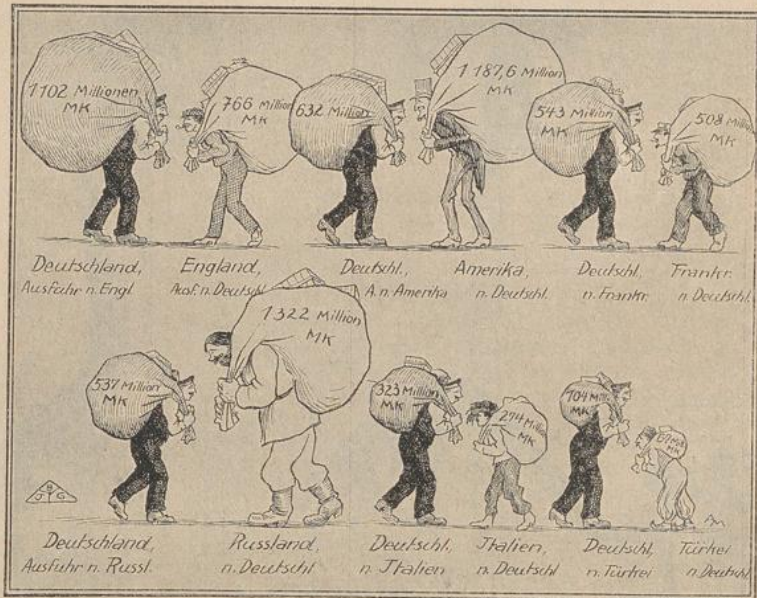 1102 Millionen
MK
766 Million
MK
632 Million
1187,6 Million
MK
543 Million
MK
508 Million
MK
Deutschland,
Ausfuhr n. Engl.
England,
Ausf. n. Deutschl.
Deutschl.,
A. n. Amerika
Amerika,
n. Deutschl.
Deutschl,
n. Frankr.
Frankr.
n. Deutschl.
537 Million
MK
1322 Million
MK
323 Million
MK
274 Million
MK
104 Million
MK
MK
B
J G
Deutschland,
Ausfuhr n. Russl.
Russland,
n. Deutschl
Deutschl.,
n. Jtalien
Jtalien,
n. Deutschl
Deutschl,
n. Türkei
Türkei
n. Deutschl